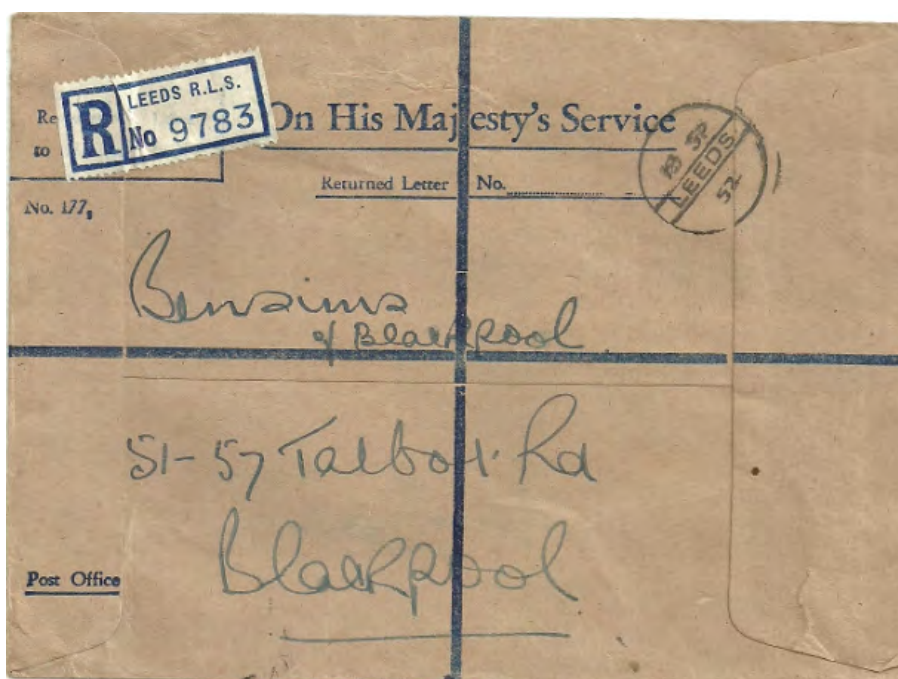 R
LEEDS R.L.S.
No 9783
On His Majesty's Service
Re
to
Returned Letter No.
No. 177,
18 SP
LEEDS
52
Bensims
of Blackpool
51-57 Talbot Rd
Blackpool
Post Office